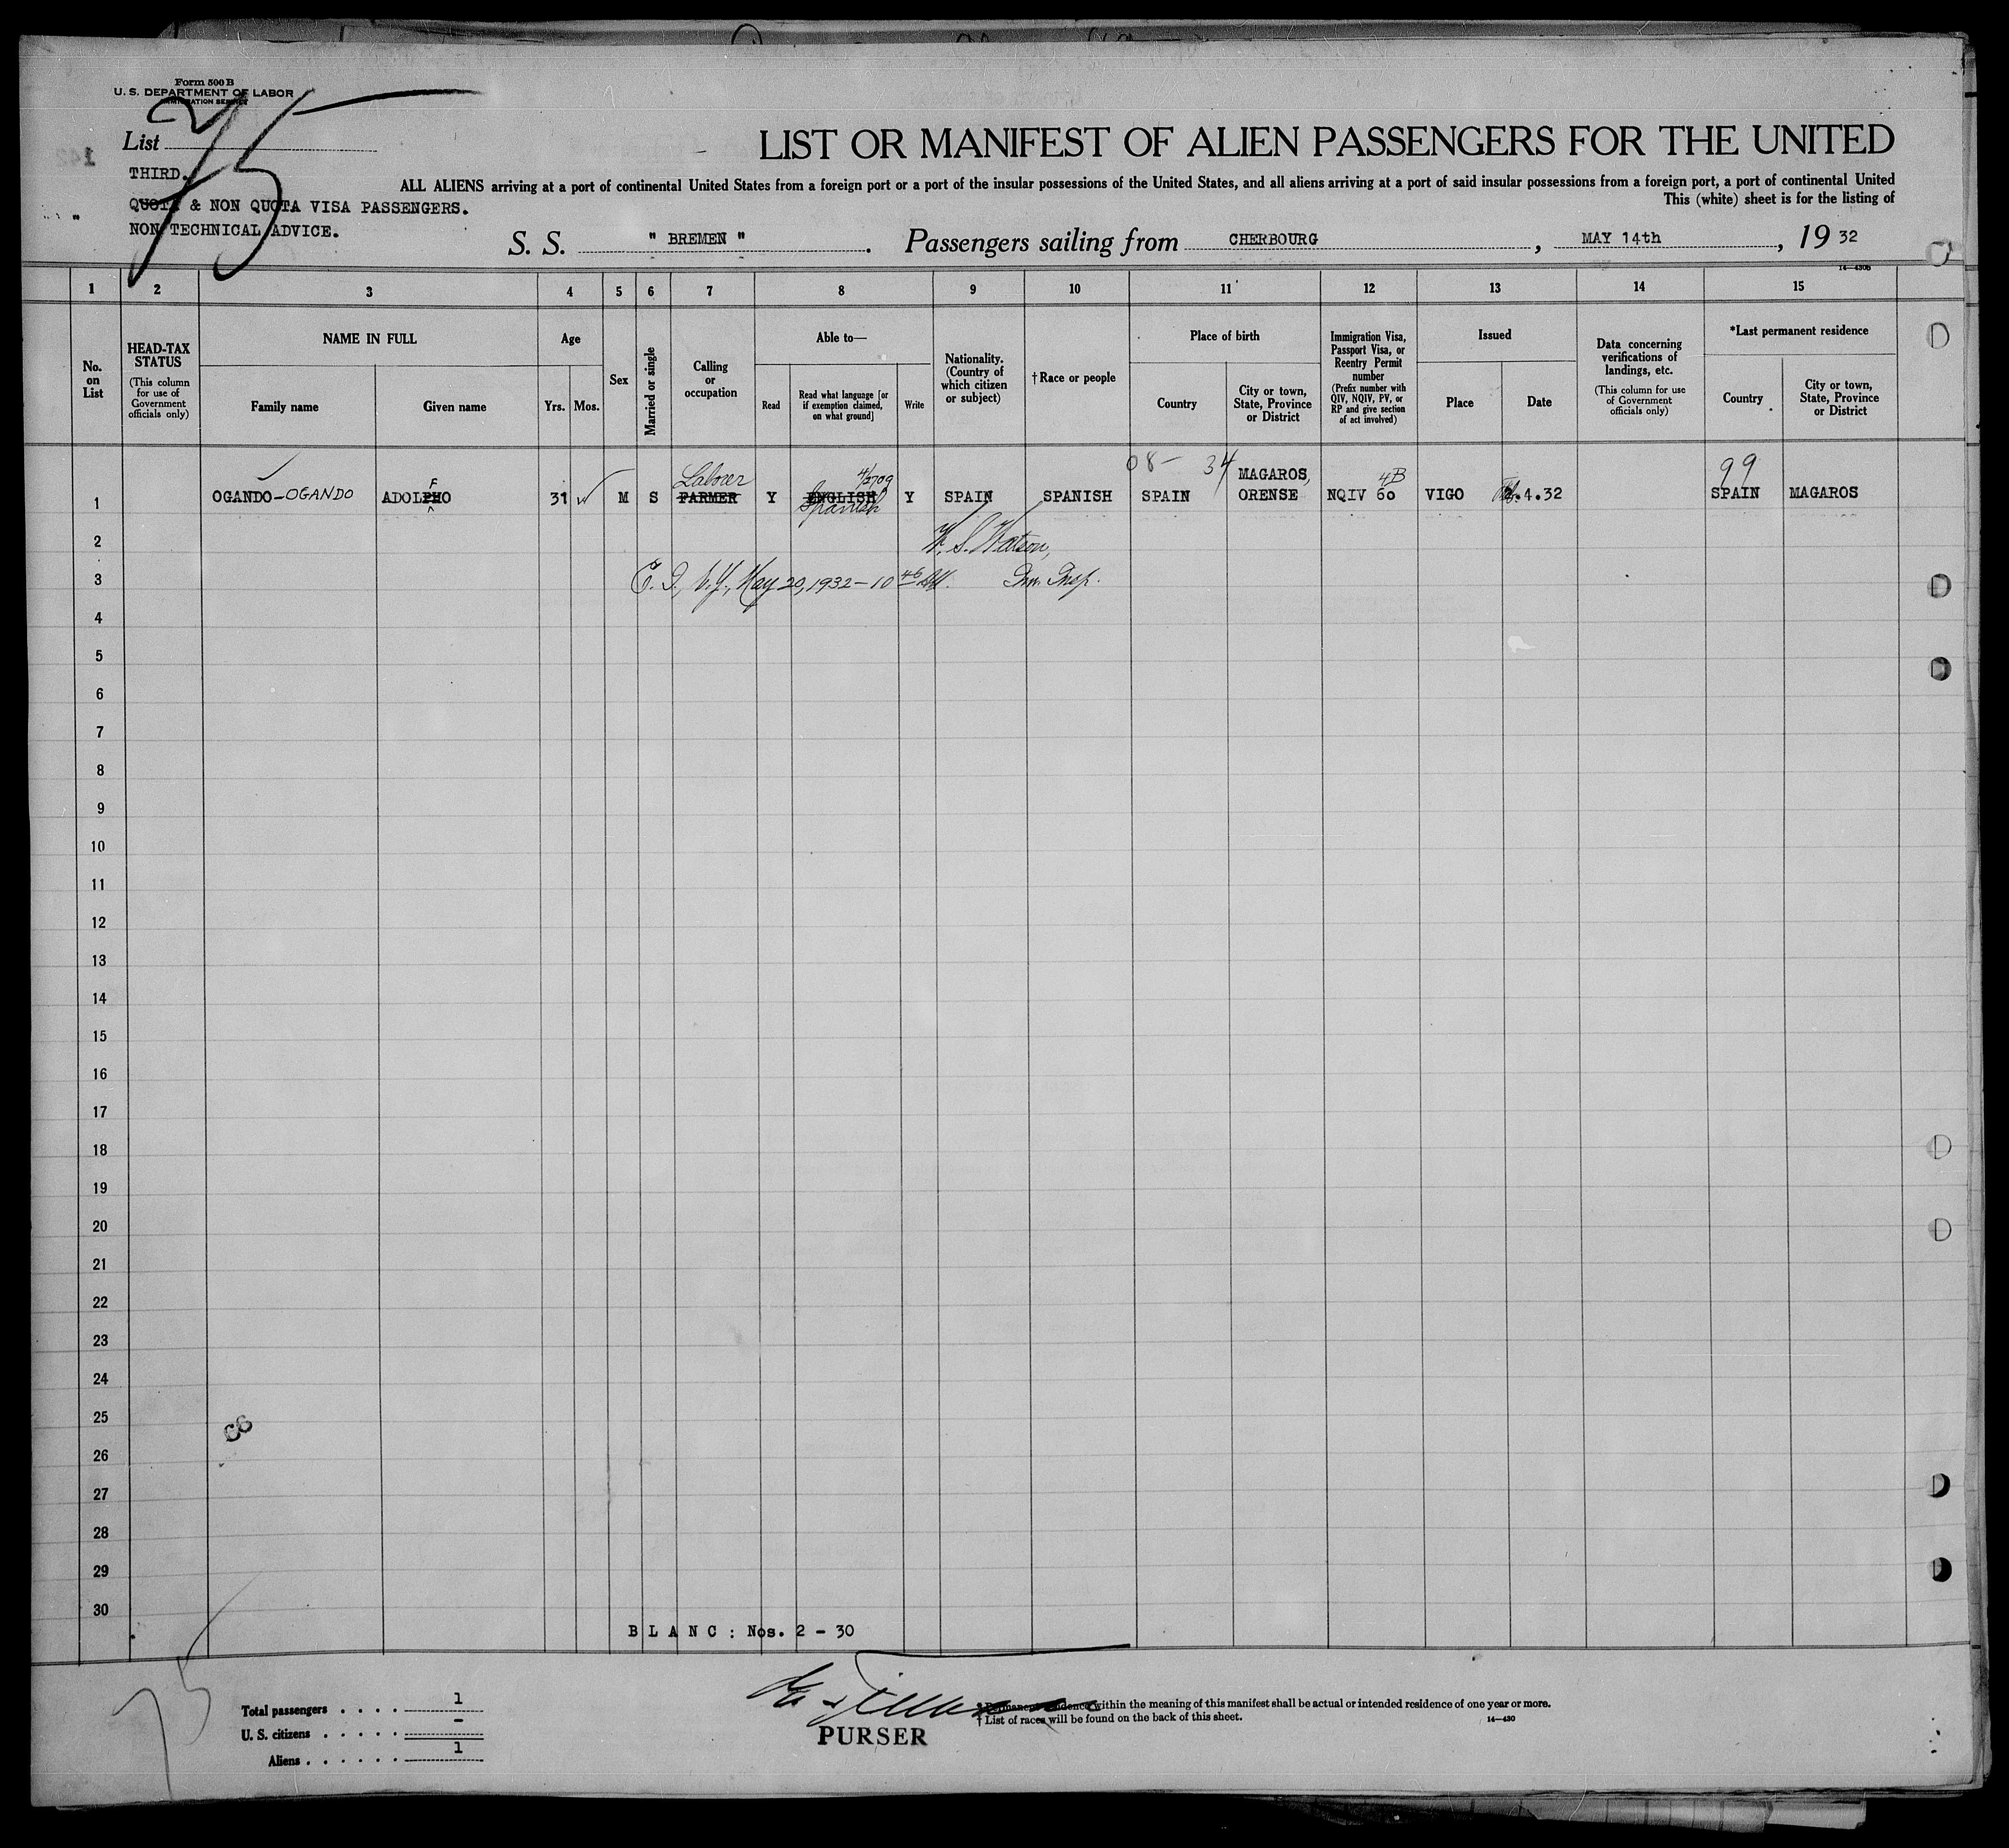 Form 500 B
U. S. DEPARTMENT OF LABOR
IMMIGRATION SERVICE
List 75
142
THIRD.
QUOTA & NON QUOTA VISA PASSENGERS.
NON TECHNICAL ADVICE.
LIST OR MANIFEST OF ALIEN PASSENGERS FOR THE UNITED
ALL ALIENS arriving at a port of continental United States from a foreign port or a port of the insular possessions of the United States, and all aliens arriving at a port of said insular possessions from a foreign port, a port of continental United
This (white) sheet is for the listing of
S. S. " BREMEN ". Passengers sailing from CHERBOURG, MAY 14th, 19 32
14—430b
1 2 3 4 5 6 7 8 9 10 11 12 13 14 15
No. on List
HEAD-TAX STATUS
(This column for use of Government officials only)
NAME IN FULL
Family name Given name
Age
Yrs. Mos.
Sex
Married or single
Calling or occupation
Able to—
Read Read what language [or if exemption claimed, on what ground] Write
Nationality. (Country of which citizen or subject)
†Race or people
Place of birth
Country City or town, State, Province or District
Immigration Visa, Passport Visa, or Reentry Permit number
(Prefix number with QIV, NQIV, PV, or RP and give section of act involved)
Issued
Place Date
Data concerning verifications of landings, etc.
(This column for use of Government officials only)
*Last permanent residence
Country City or town, State, Province or District
Laborer 08- 34 MAGAROS, 4B 99
1 OGANDO-OGANDO ADOLPHO F 31 M S FARMER Y ENGLISH Spanish Y SPAIN SPANISH SPAIN ORENSE NQIV 60 VIGO 4.32 SPAIN MAGAROS
2 W. S. Watson,
3 E. I., N.Y., May 20, 1932 - 10 45 AM. Imm. Insp.
4
5
6
7
8
9
10
11
12
13
14
15
16
17
18
19
20
21
22
23
24
25
26
27
28
29
30
B L A N C : Nos. 2 - 30
75
Total passengers . . . . 1
U. S. citizens . . . . . -
Aliens . . . . . . 1
PURSER
* Permanent residence within the meaning of this manifest shall be actual or intended residence of one year or more.
† List of races will be found on the back of this sheet.
14—430